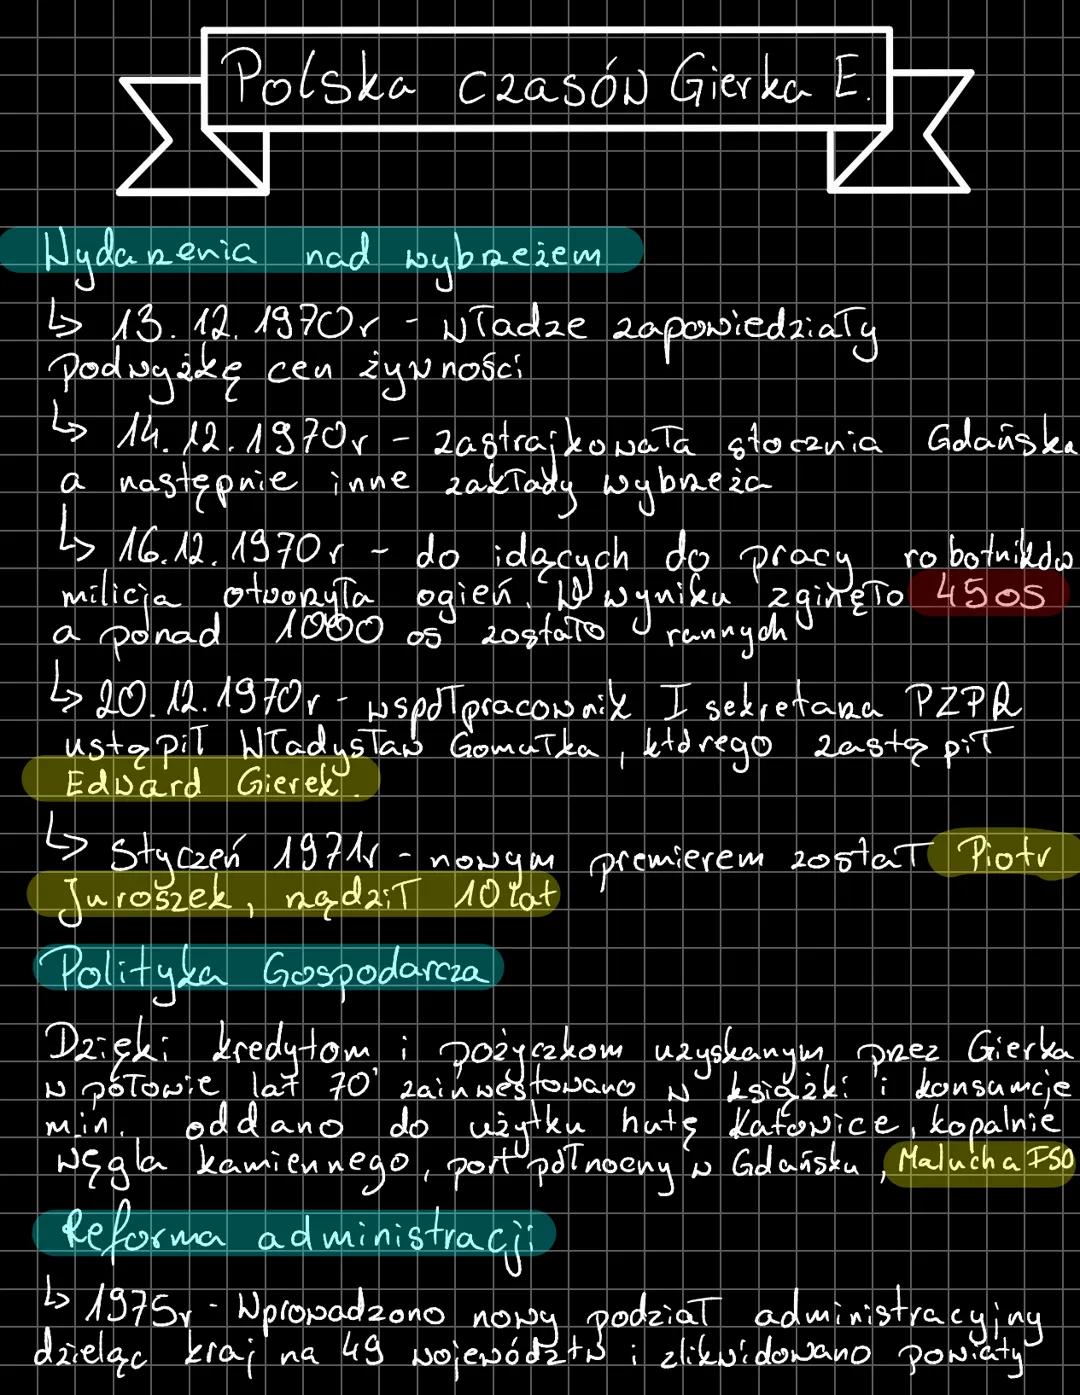 Polska czasów Gierka E.
Wydarzenia nad wybrzeżem
↳ 13.12.1970r - władze zapowiedziały
podwyżkę cen żywności
↳ 14.12.1970r - zastrajkowała stocznia Gdańska
a następnie inne zakłady wybrzeża
↳ 16.12.1970r - do idących do pracy robotników
milicja otworzyła ogień. W wyniku zginęło 45 os
a ponad 1000 os zostało rannych
↳ 20.12.1970r - współpracownik I sekretarza PZPR
ustąpił Władysław Gomułka, którego zastąpił
Edward Gierek.
↳ Styczeń 1971r - nowym premierem został Piotr
Juroszek, rządził 10 lat
Polityka Gospodarcza
Dzięki kredytom i pożyczkom uzyskanym przez Gierka
w połowie lat 70' zainwestowano w książki i konsumcje
min. oddano do użytku hutę Katowice, kopalnie
węgla kamiennego, port północny w Gdańsku, Malucha FSO
Reforma administracji
↳ 1975r - Wprowadzono nowy podział administracyjny
dzieląc kraj na 49 województw i zlikwidowano powiaty